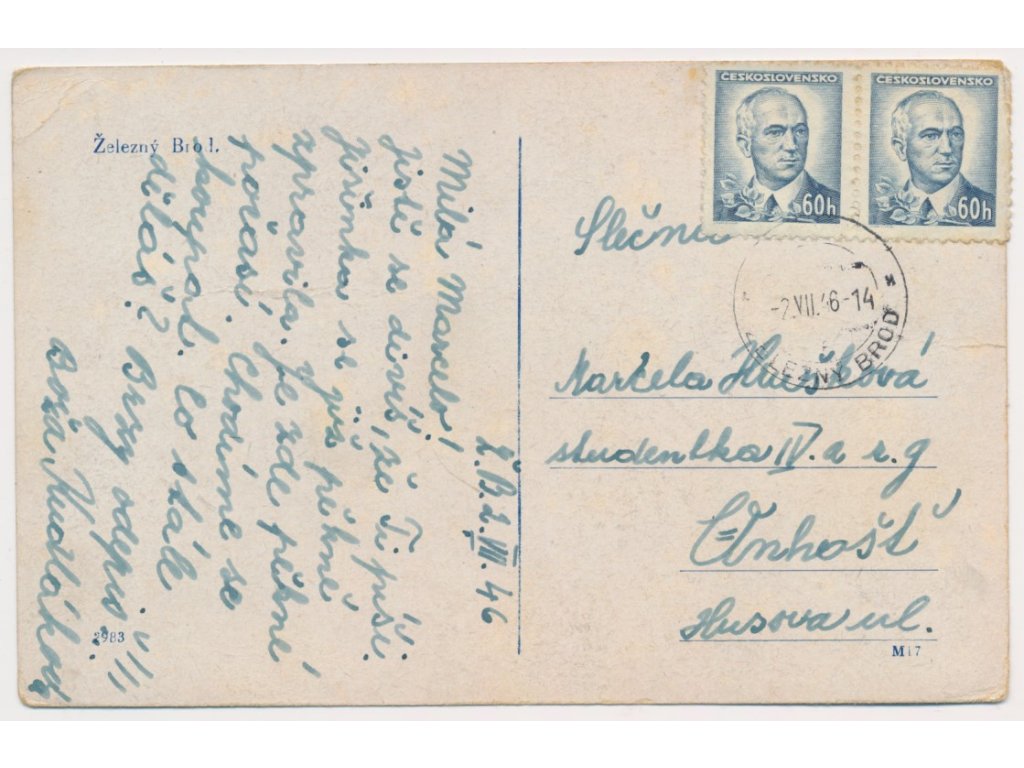 Železný Brod.
Ž. B. 2. VII. 46
Milá Marcelo!
jistě se divíš, že Ti píši.
Jiřinka se již pěkně
zpravila. Je zde pěkné
počasí. Chodíme se
koupat. Co stále
děláš? Brzy odepiš!!
Boža
2983
ČESKOSLOVENSKO
60h
ČESKOSLOVENSKO
60h
-2.VII.46-14
ŽELEZNÝ BROD
Slečna
Marcela
studentka IV. a r. g
Unhošť
Husova ul.
M17